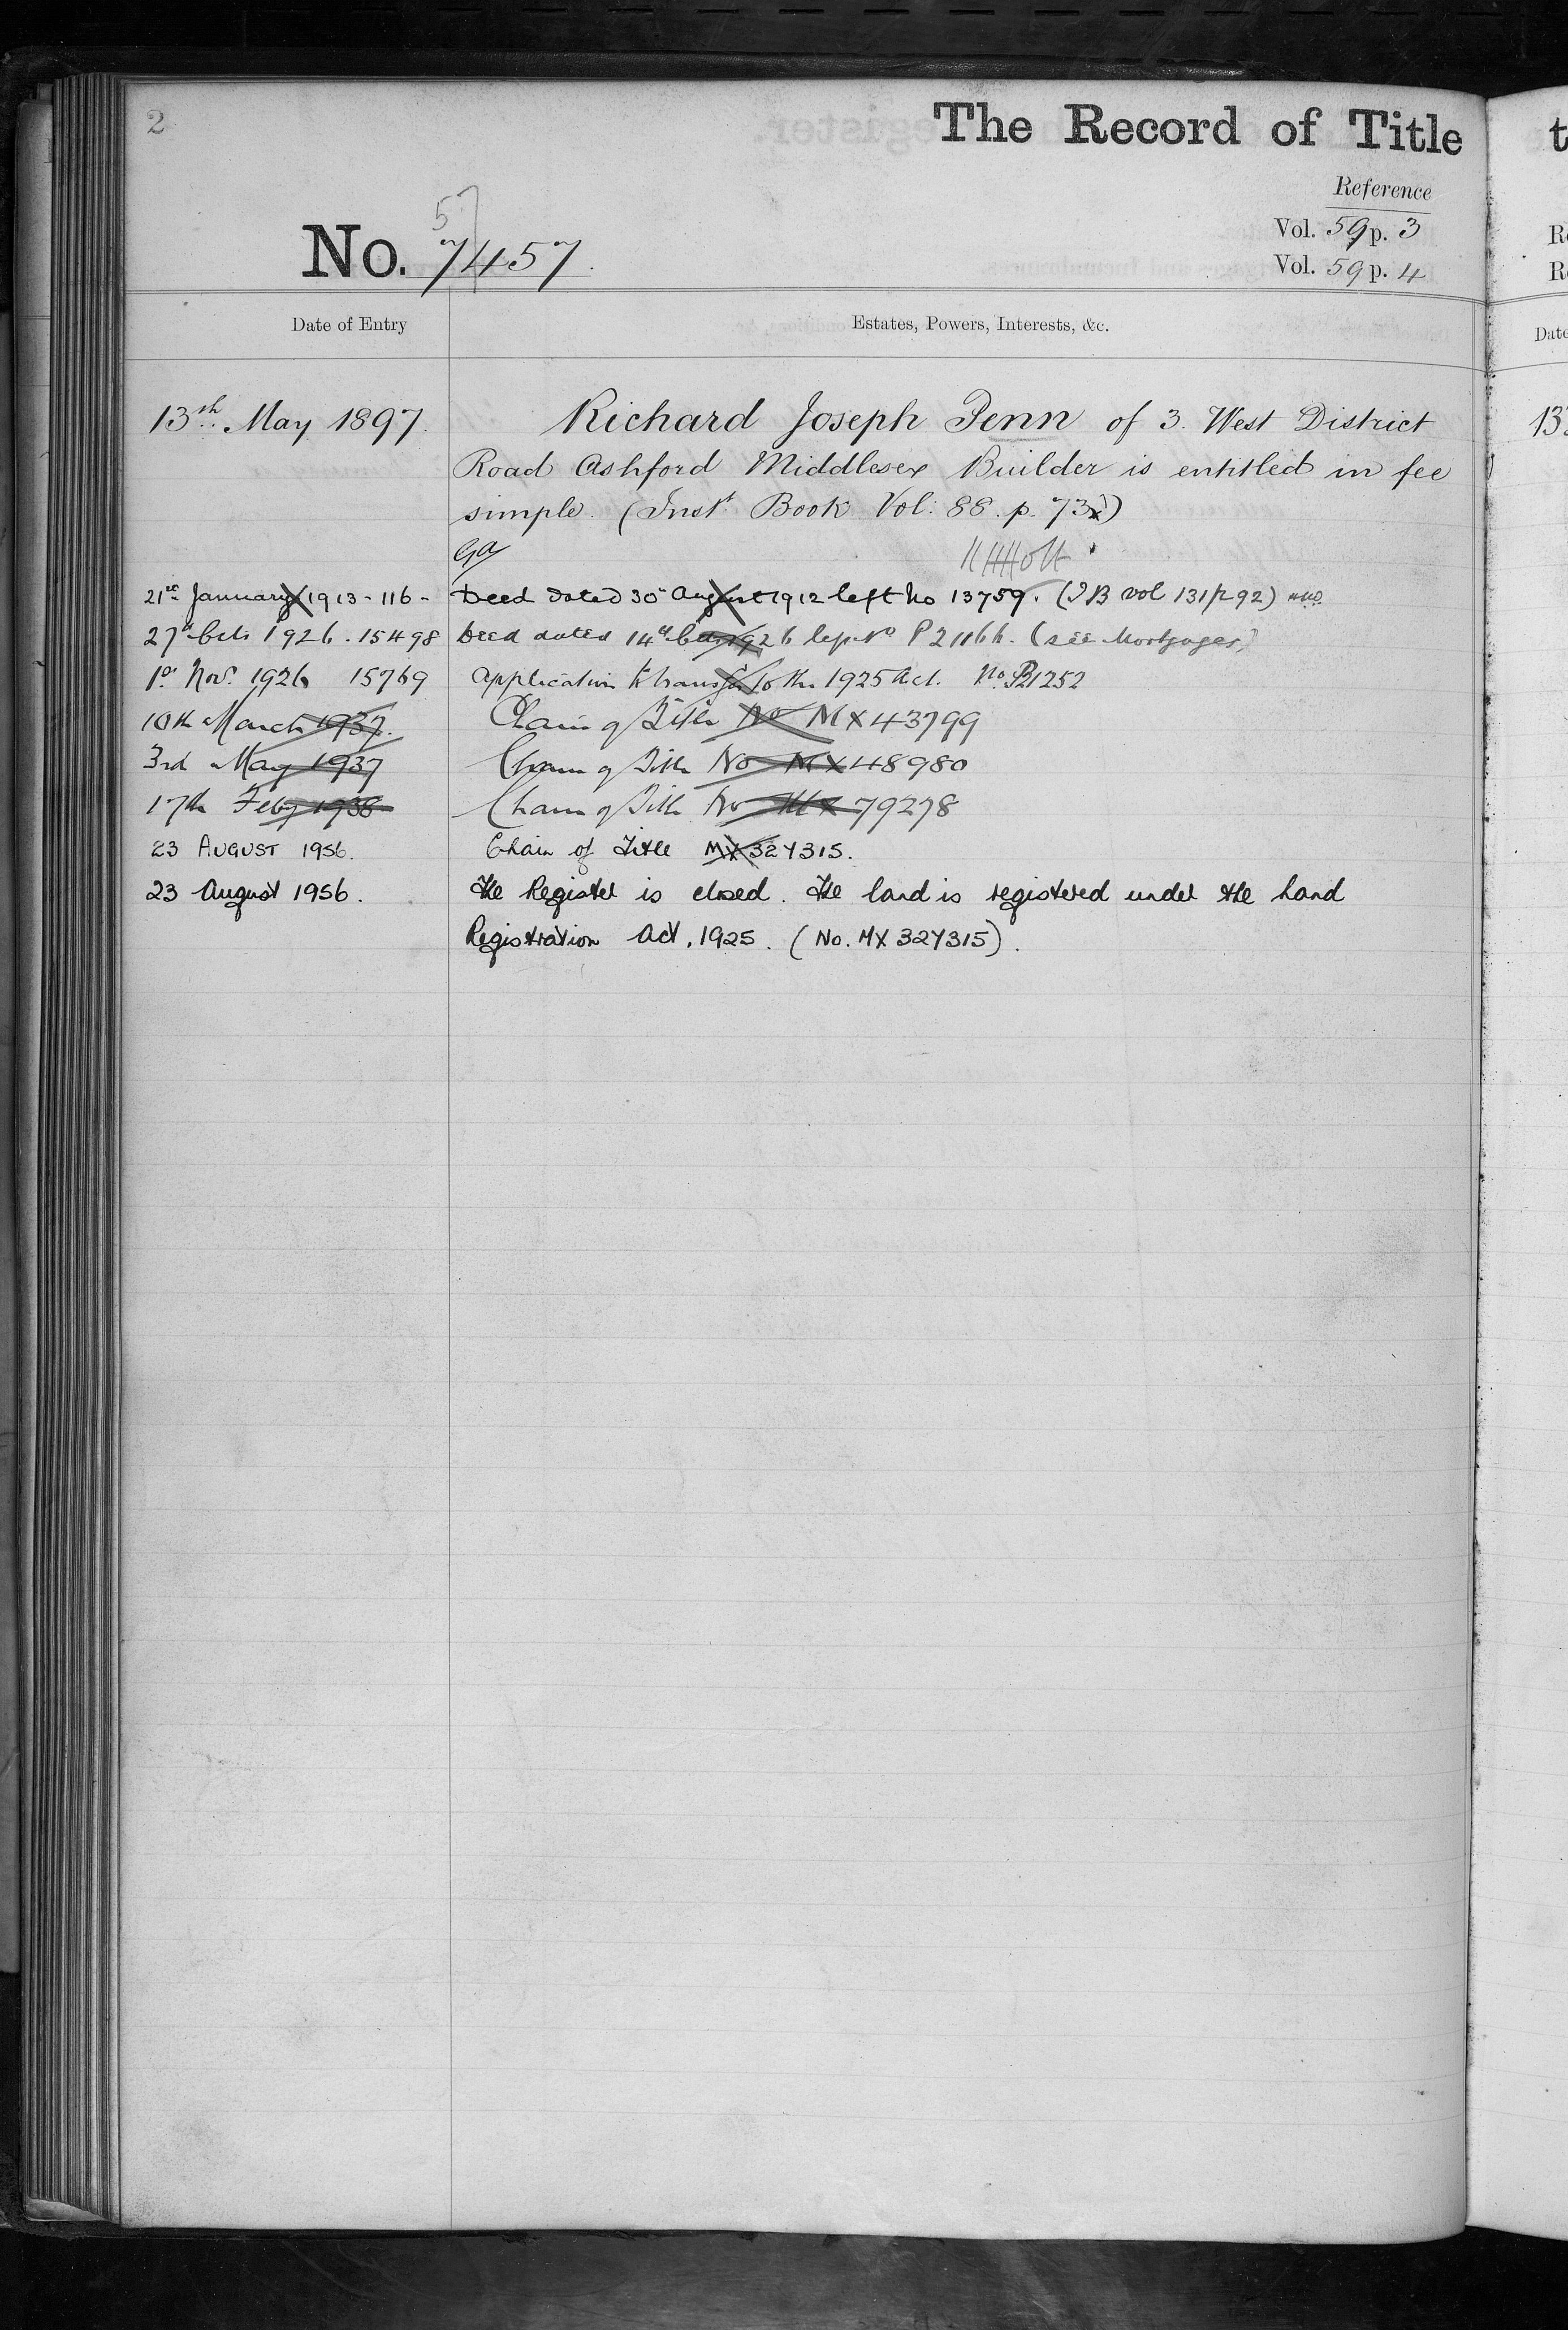 2
The Record of Title
Reference
Vol. 59 p. 3
Vol. 59 p. 4
57
No. 7457.
Date of Entry
Estates, Powers, Interests, &c.
13th May 1897.
Richard Joseph Penn of 3. West District
Road Ashford Middlesex Builder is entitled in fee
simple. (Inst. Book Vol: 88. p. 73)
21st January 1913 - 116 - Deed dated 30th August 1912 left No 13759. (IB vol 131 p 92)
27th Oct. 1926. 15498 Deed dated 14th 1926 P21166. (see Mortgages)
1st Nov. 1926 15769 Application to transfer to the 1925 Act. No. P21252
10th March 1937. Chain of Title No MX 43799
3rd May 1937 Chain of Title No MX 48980
17th Feby 1938 Chain of Title No MX 79278
23 AUGUST 1956. Chain of Title MX 327315.
23 August 1956. The Register is closed. The land is registered under the Land
Registration Act, 1925. (No. MX 327315).
t
R
R
Date
13